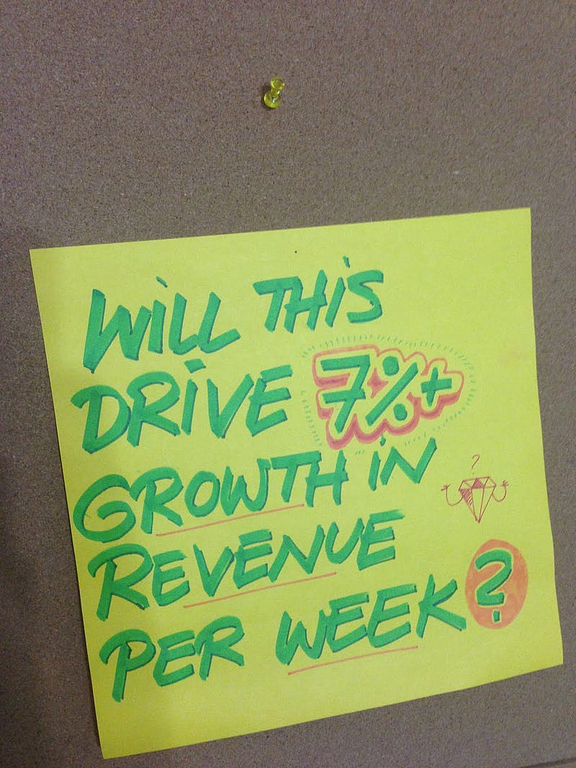 WiLL THiS
DRiVE 7%+
GROWTH iN
?
REVENUE
PER WEEK?